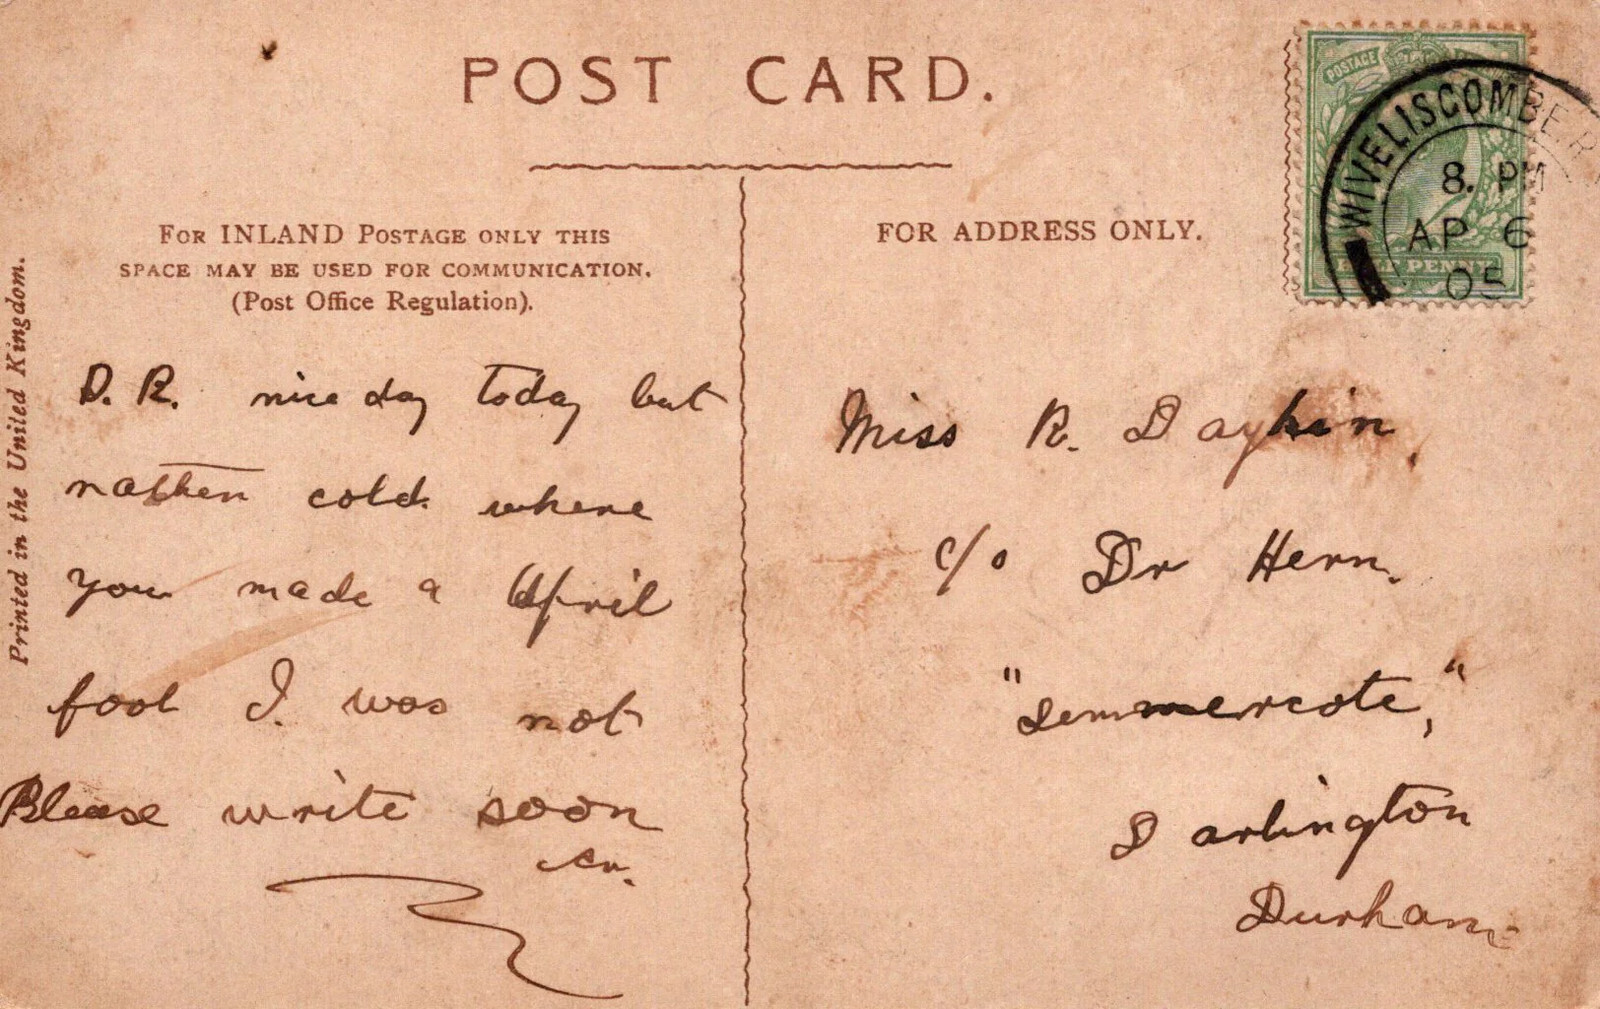 POST CARD.
FOR INLAND POSTAGE ONLY THIS
SPACE MAY BE USED FOR COMMUNICATION.
(Post Office Regulation).
FOR ADDRESS ONLY.
Printed in the United Kingdom.
POSTAGE
HALFPENNY
WIVELISCOMBE
8. PM
AP 6
05
D. R. nice day today but
rather cold. where
you made a April
fool I. was not
Please write soon
Miss R. Daykin,
c/o Dr Hern.
"Semmercote,"
Darlington
Durham